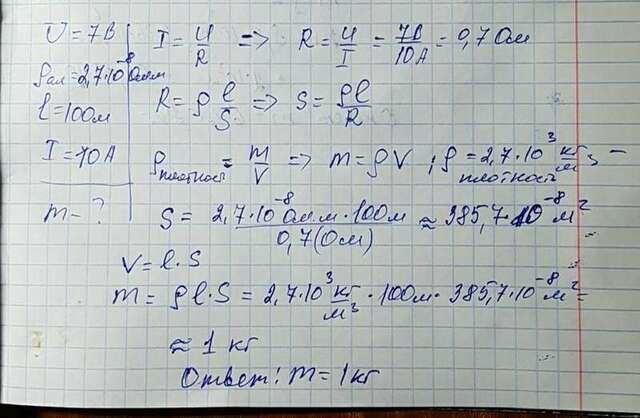 U = 7В
ρал = 2,7·10⁻⁸ Ом·м
l = 100м
I = 10А
m - ?
I = U/R => R = U/I = 7В/10А = 0,7 Ом
R = ρ l/S => S = ρl/R
ρплотност = m/V => m = ρV ; ρплотност = 2,7·10³ кг/м³ –
S = 2,7·10⁻⁸ Ом.м·100м / 0,7(Ом) ≈ 385,7·10⁻⁸ м²
V = l·S
m = ρl·S = 2,7·10³ кг/м³ · 100м · 385,7·10⁻⁸ м² =
≈ 1 кг
Ответ: m = 1кг